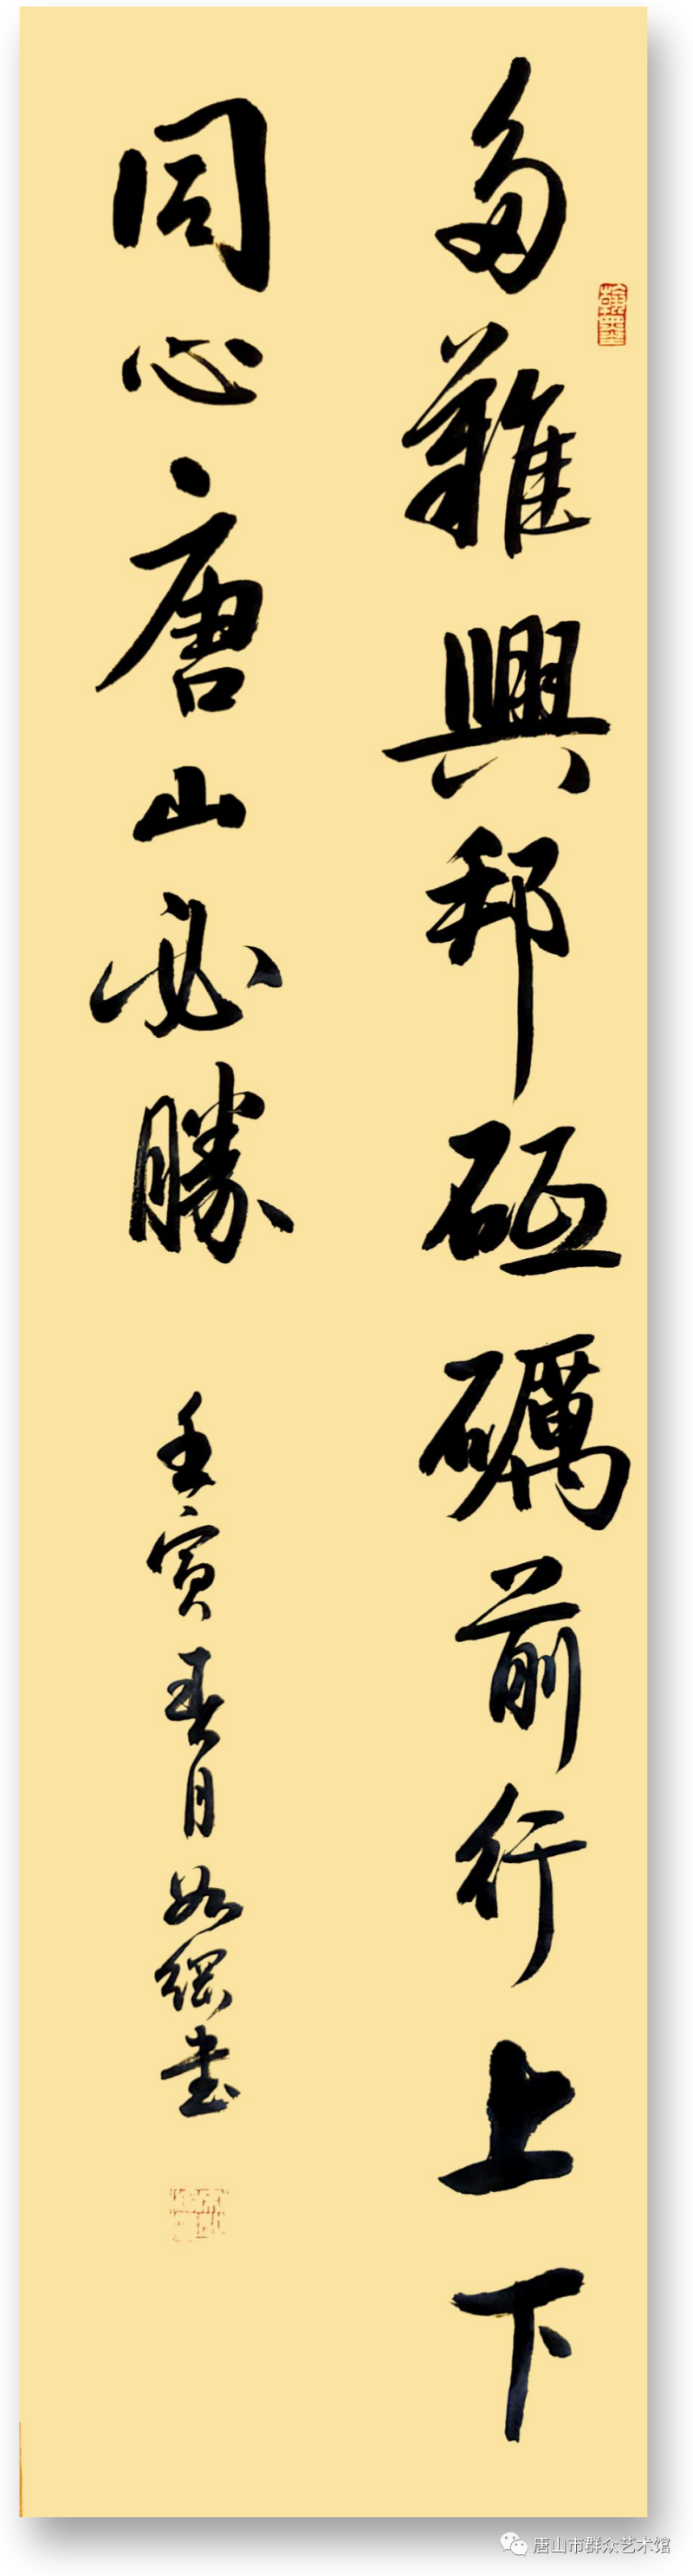 多難興邦砥礪前行上下
同心唐山必勝
壬寅春月如綱书
翰墨
唐山市群众艺术馆